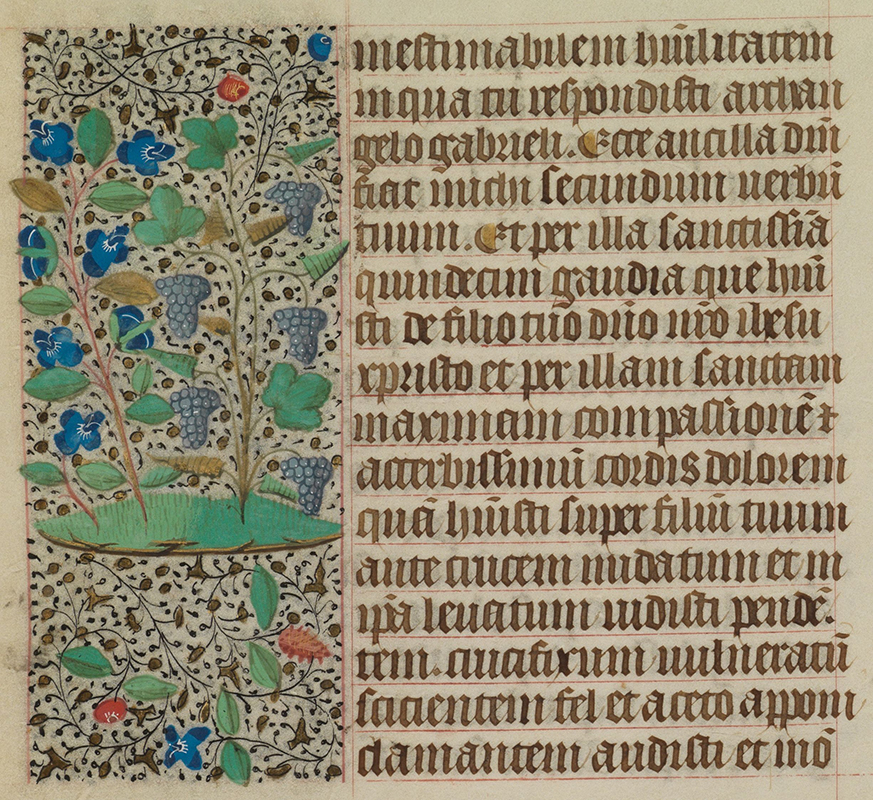 inestimabilem hūilitatem
in qua tu respondisti archan
gelo gabrieli. Ecce ancilla dm̄
fiat michi secundum uerbū
tuum. Et per illa sanctissīa
quindecim gaudia que hūi
sti de filio tuo dn̄o nr̄o ihesu
xpristo et per illam sanctam
maximam compassionē ⁊
acerbissimū cordis dolorem
quā hūisti super filiū tuum
ante crucem nudatum et in
ip̄a leuatum uidisti pendē.
tem. crucifixum uulneratū
scicientem fel et aceto apponi
clamantem audisti et mo͞